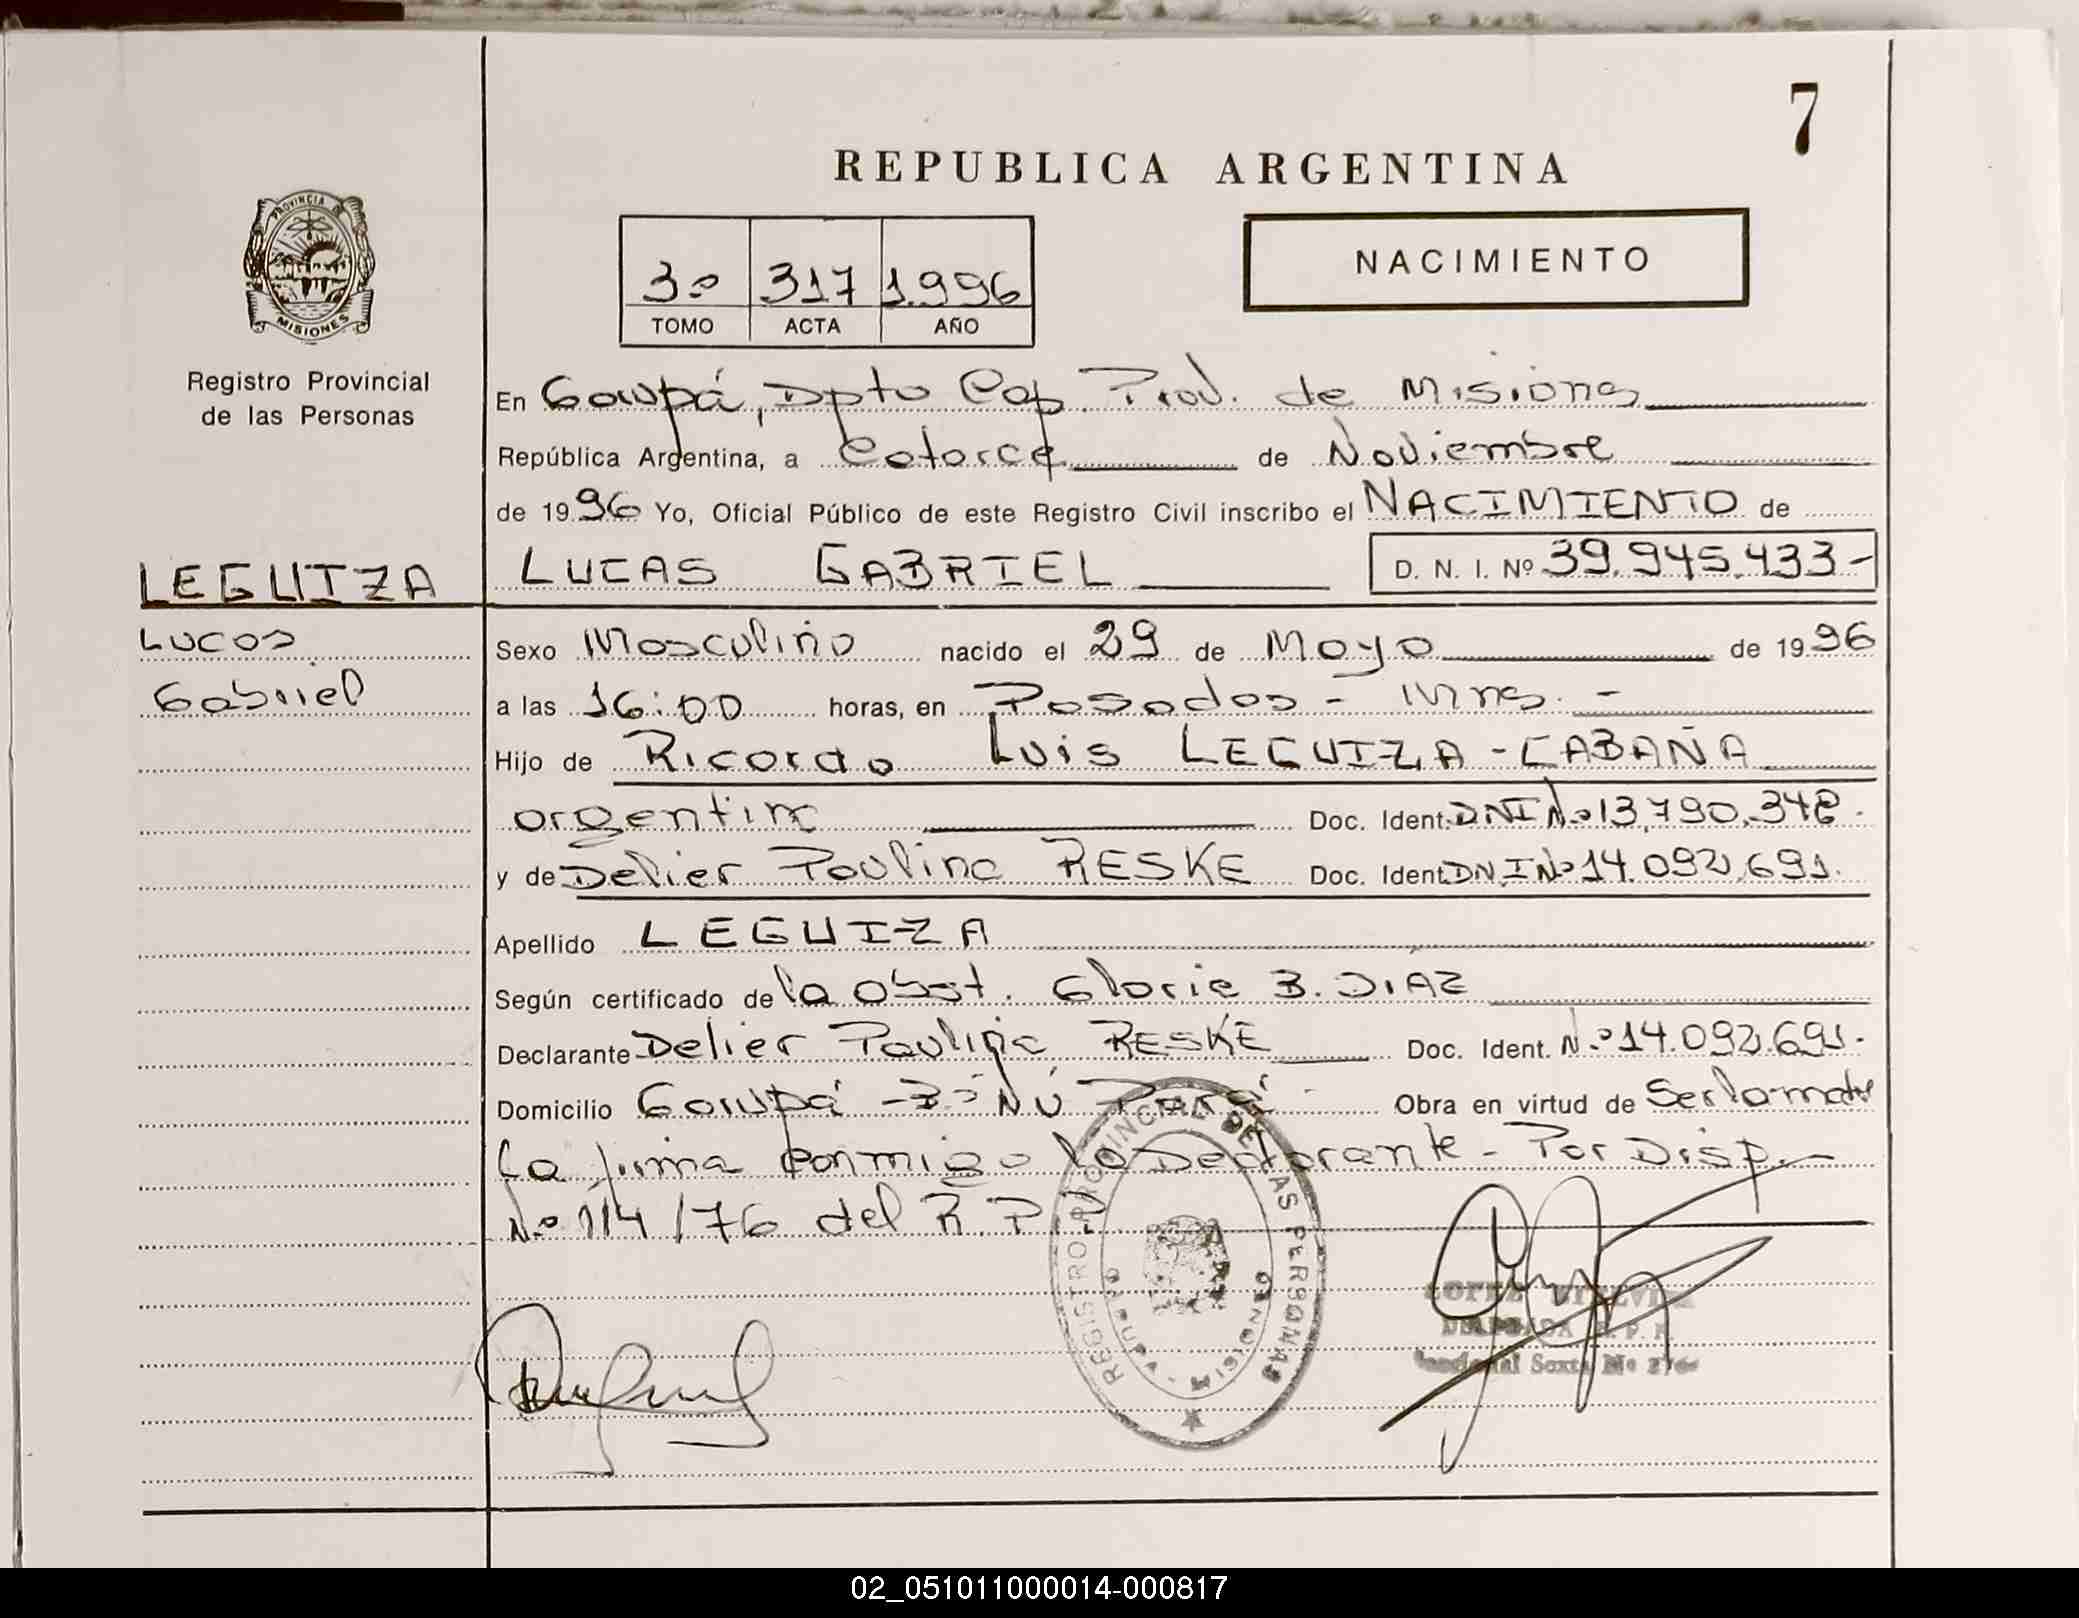 7
REPUBLICA ARGENTINA
PROVINCIA DE
MISIONES
NACIMIENTO
3º 317 1.996
TOMO ACTA AÑO
Registro Provincial
de las Personas
En Garupá, Dpto Cap. Prov. de Misiones
República Argentina, a Catorce de Noviembre
de 1996 Yo, Oficial Público de este Registro Civil inscribo el NACIMIENTO de
LEGUIZA LUCAS GABRIEL D. N. I. Nº 39.945.433-
Lucas
Gabriel
Sexo Masculino nacido el 29 de Mayo de 1996
a las 16:00 horas, en Posadas - Mnes. -
Hijo de Ricardo Luis LEGUIZA - CABAÑA
argentina Doc. Ident. DNI Nº 13.790.348.
y de Delier Paulina RESKE Doc. Ident. DNI Nº 14.092.691.
Apellido LEGUIZA
Según certificado de la Obst. Gloria B. DIAZ
Declarante Delier Paulina RESKE Doc. Ident. N.º 14.092.691.
Domicilio Garupá - Bº Ñú Porá - Obra en virtud de Ser la madre
La firma conmigo la Declarante - Por Disp.
Nº 114/76 del R. P. P.
REGISTRO PROVINCIAL DE LAS PERSONAS
MISIONES
R. P. P.
Sexta Nº
02_051011000014-000817